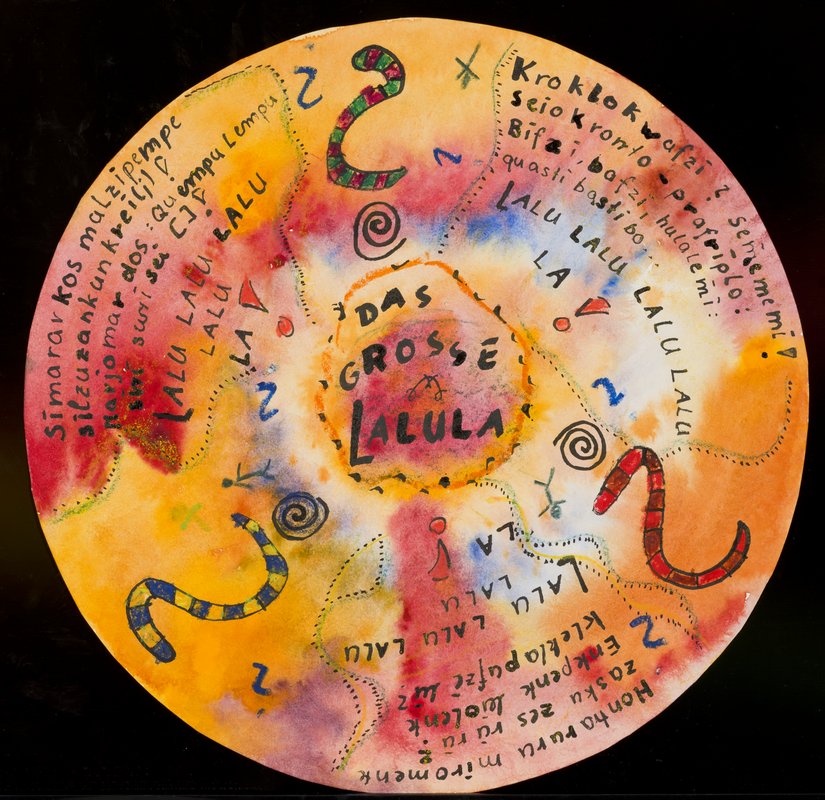 DAS
GROSSE
LALULA
Kroklokwafzi? Semememi!
Seiokronto - prafriplo:
Bifzi, bafzi; hulalemi:
quasti basti bo...
LALU LALU LALU LALU
LA!
Hontraruru miromente
zasku zes rü rü?
Entepente leiolente
klekwapufzi lü?
LALU LALU LALU LALU
LA!
Simarar kos malzipempe
silzuzankunkrei(;)!
marjomar dos: Quempu Lempu
siri suri sei []!
LALU LALU LALU
LALU
LA!